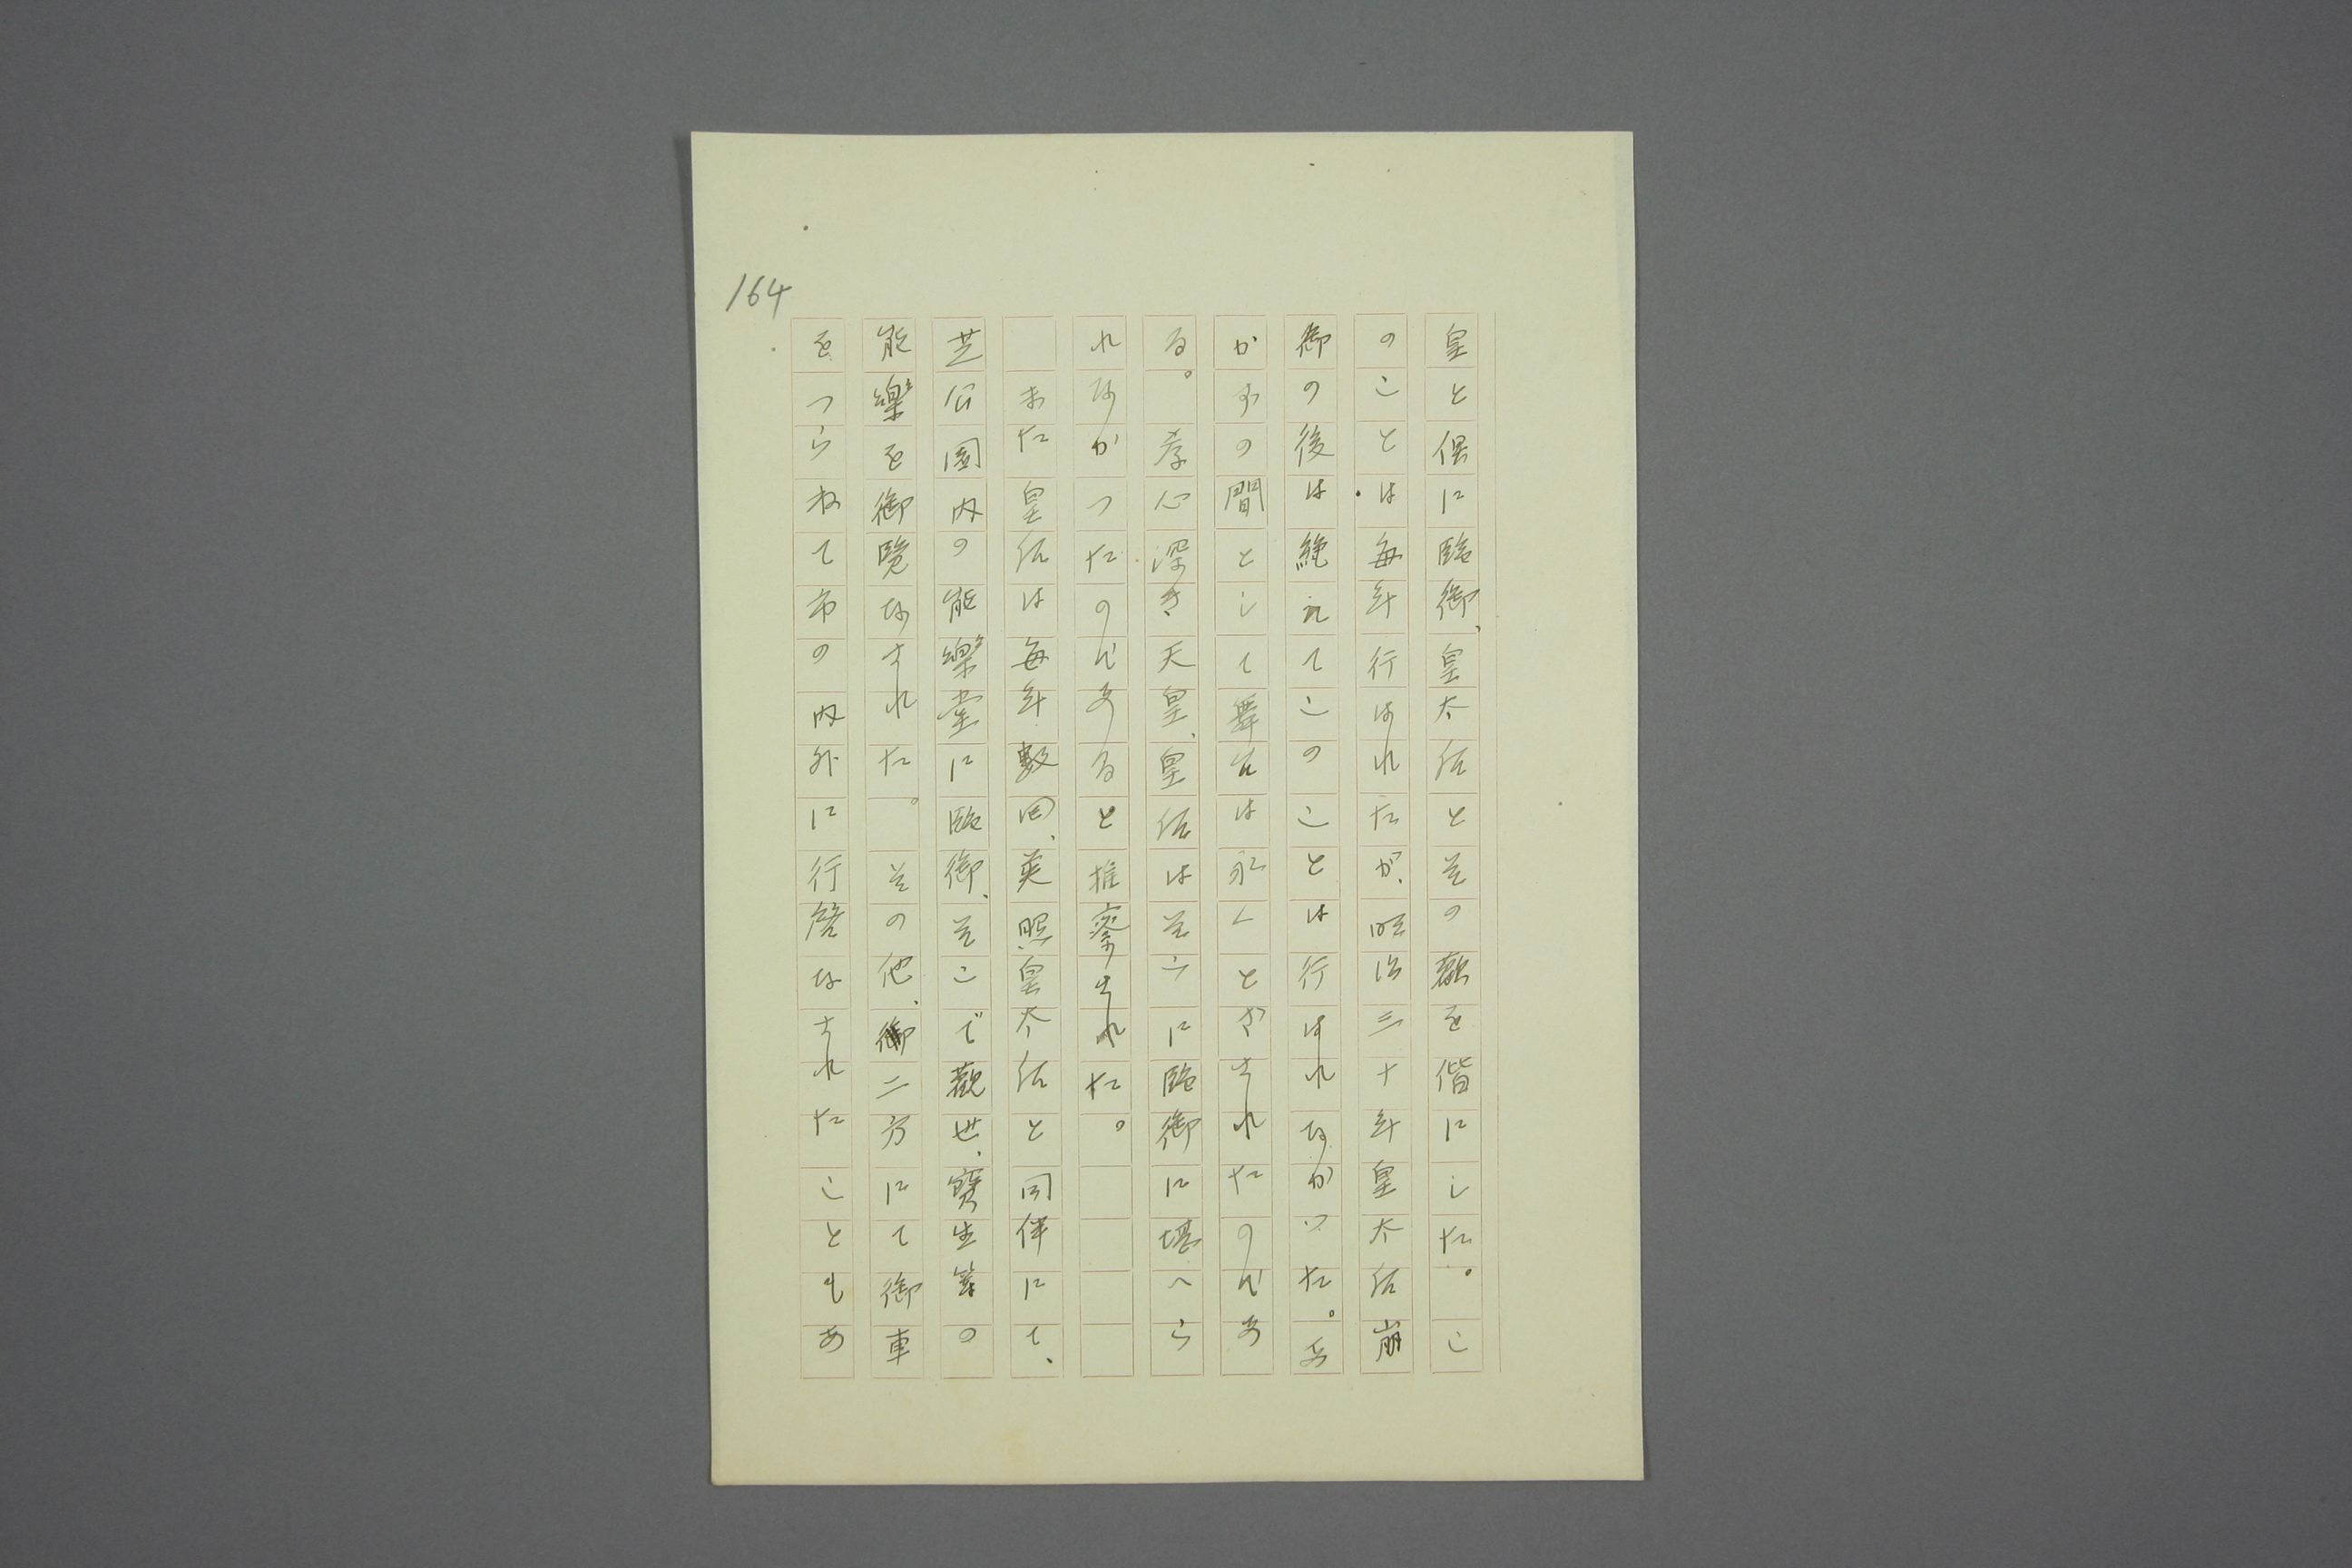 164
皇と倶に臨御、皇太后とその歡を偕にした。こ
のことは毎年行はれたが、明治三十年皇太后崩
御の後は絶えてこのことは行はれなかつた。あ
かずの間として舞台は永くとざされたのであ
る。孝心深き天皇、皇后はそこに臨御に堪へら
れなかつたのであると推察された。
また皇后は毎年數回、英照皇太后と同伴にて、
芝公園内の能樂堂に臨御、そこで觀世、寶生等の
能樂を御覽なされた。その他、御二方にて御車
をつらねて市の内外に行啓なされたこともあ